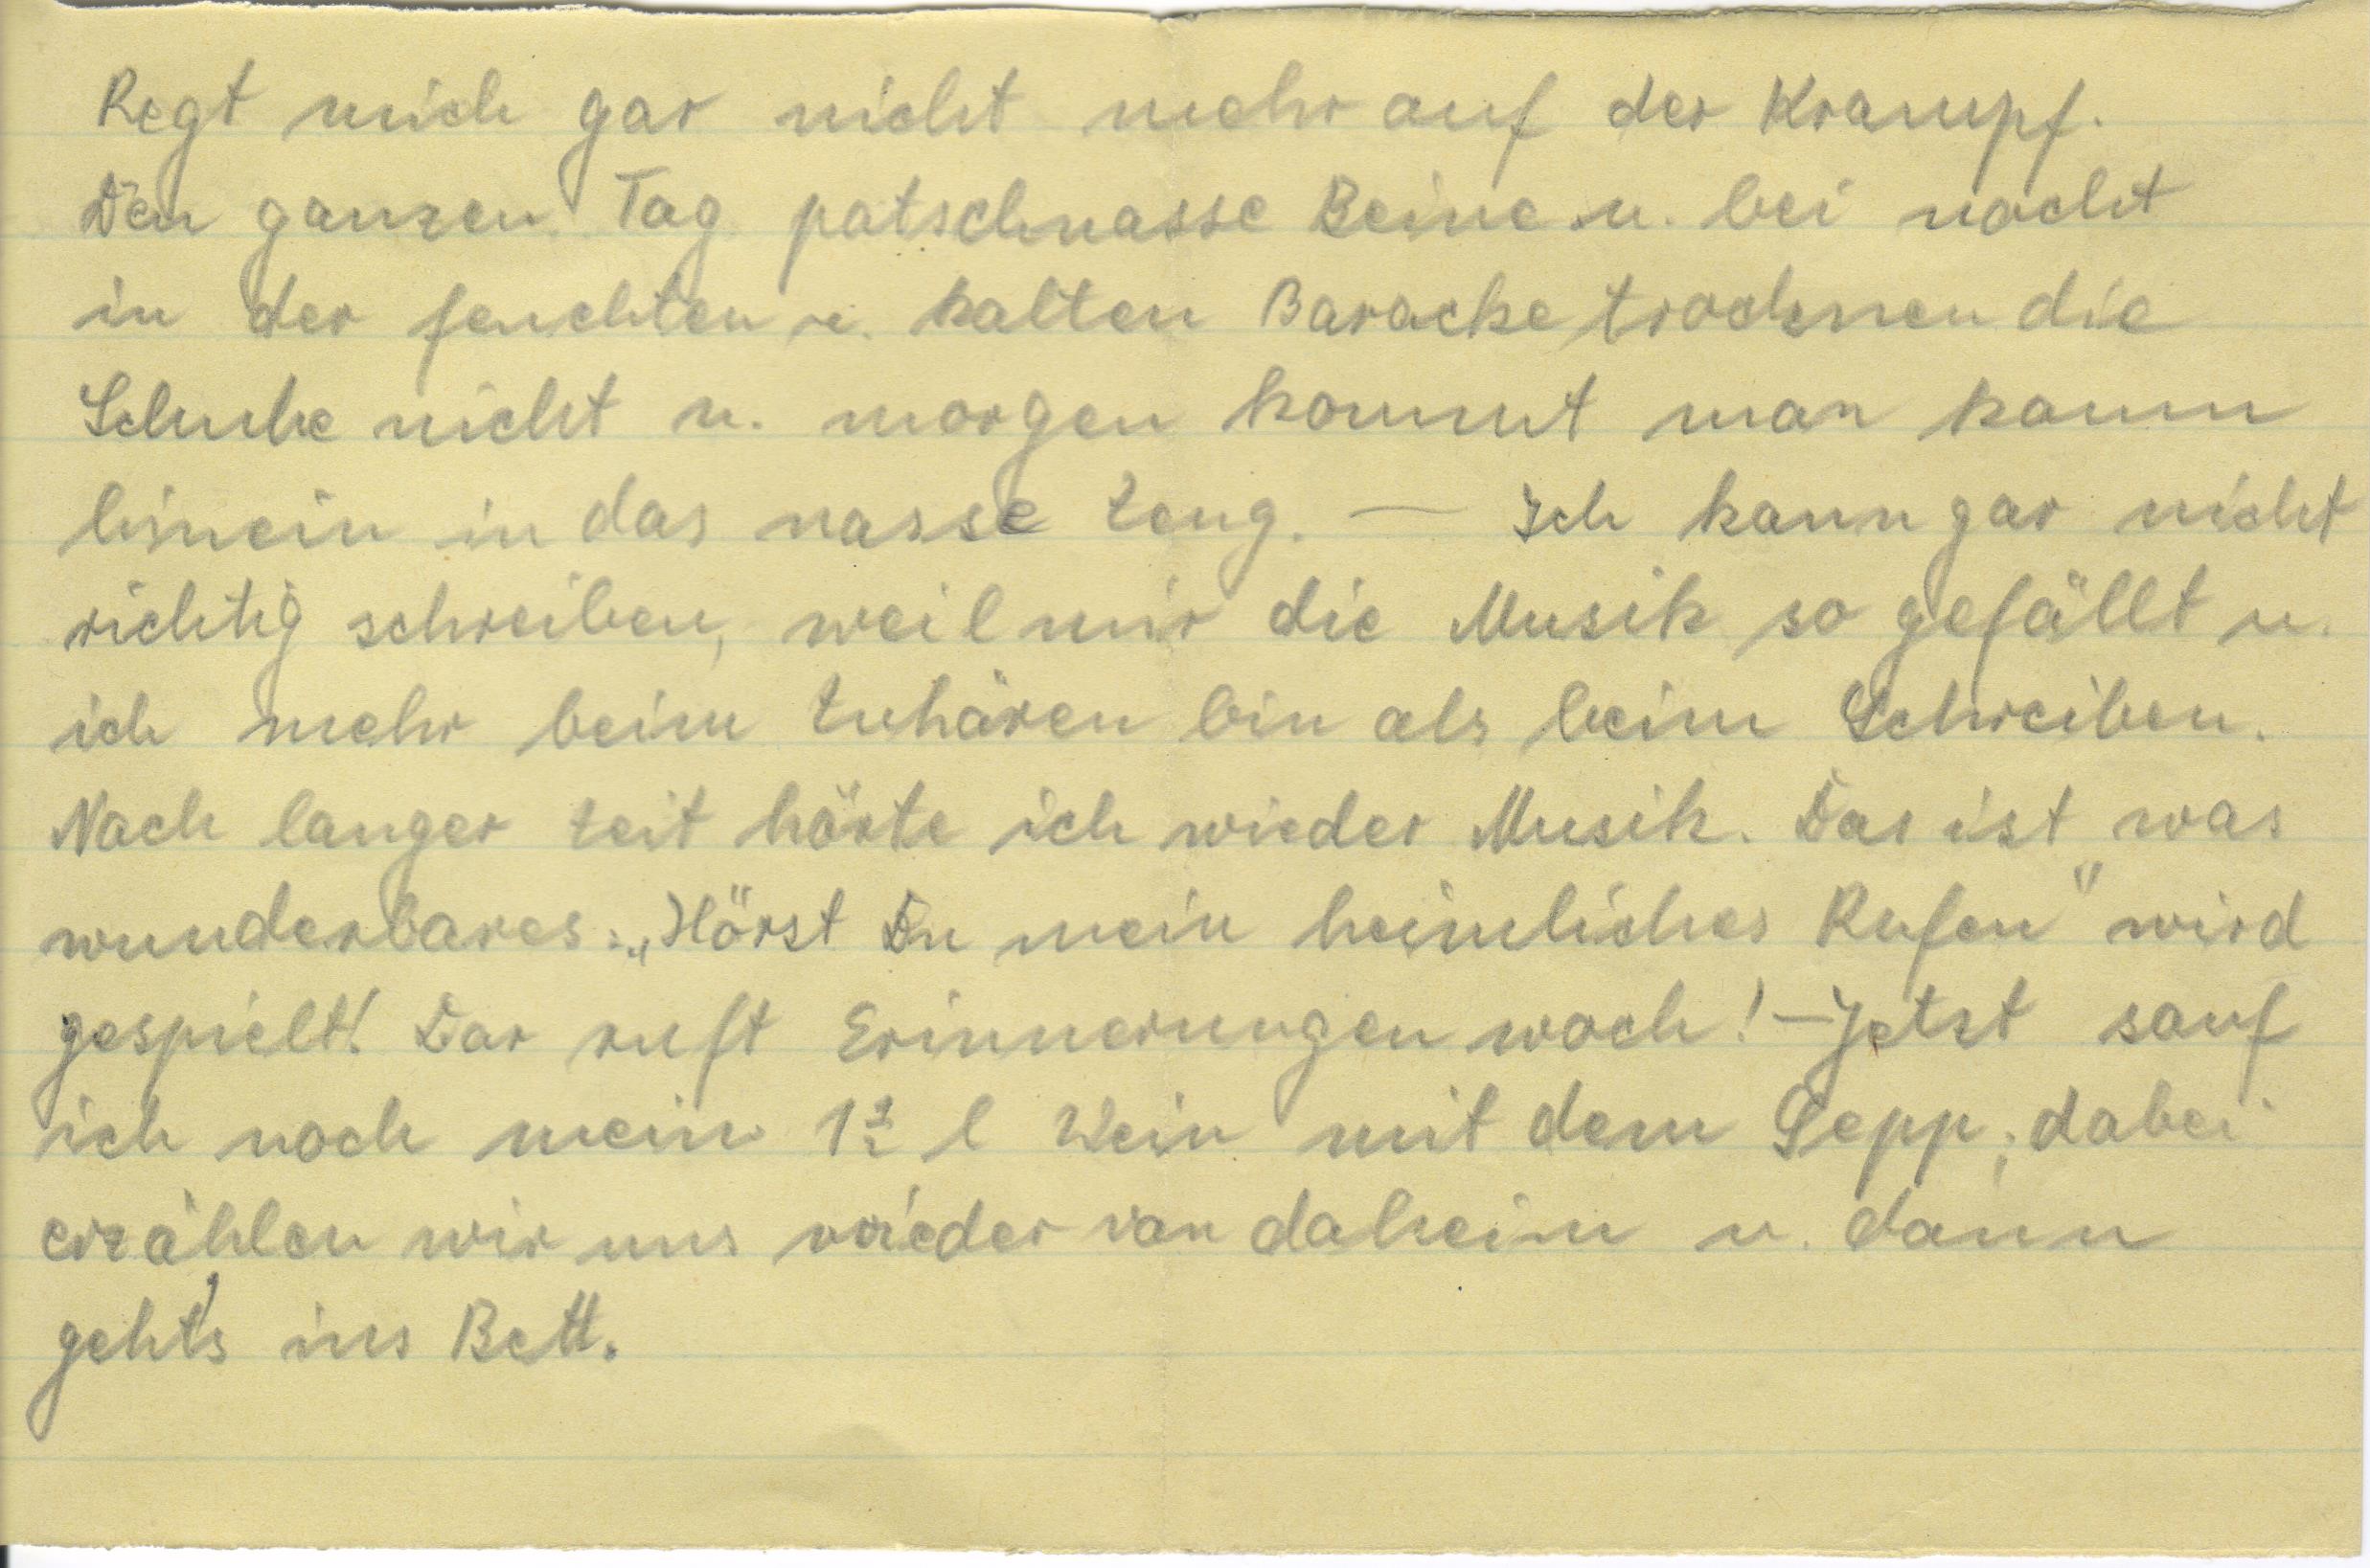 Regt mich gar nicht mehr auf der Krampf.
Den ganzen Tag patschnasse Beine u. bei nacht
in der feuchten u. kalten Baracke trocknen die
Schuhe nicht u. morgen kommt man kaum
hinein in das nasse Zeug. — Ich kann gar nicht
richtig schreiben, weil mir die Musik so gefällt u.
ich mehr beim Zuhören bin als beim Schreiben.
Nach langer Zeit hörte ich wieder Musik. Das ist was
wunderbares. „Hörst Du mein heimliches Rufen" wird
gespielt! Das ruft Erinnerungen wach! – Jetzt sauf
ich noch mein l Wein mit dem Sepp; dabei
erzählen wir uns wieder von daheim u. dann
geht's ins Bett.